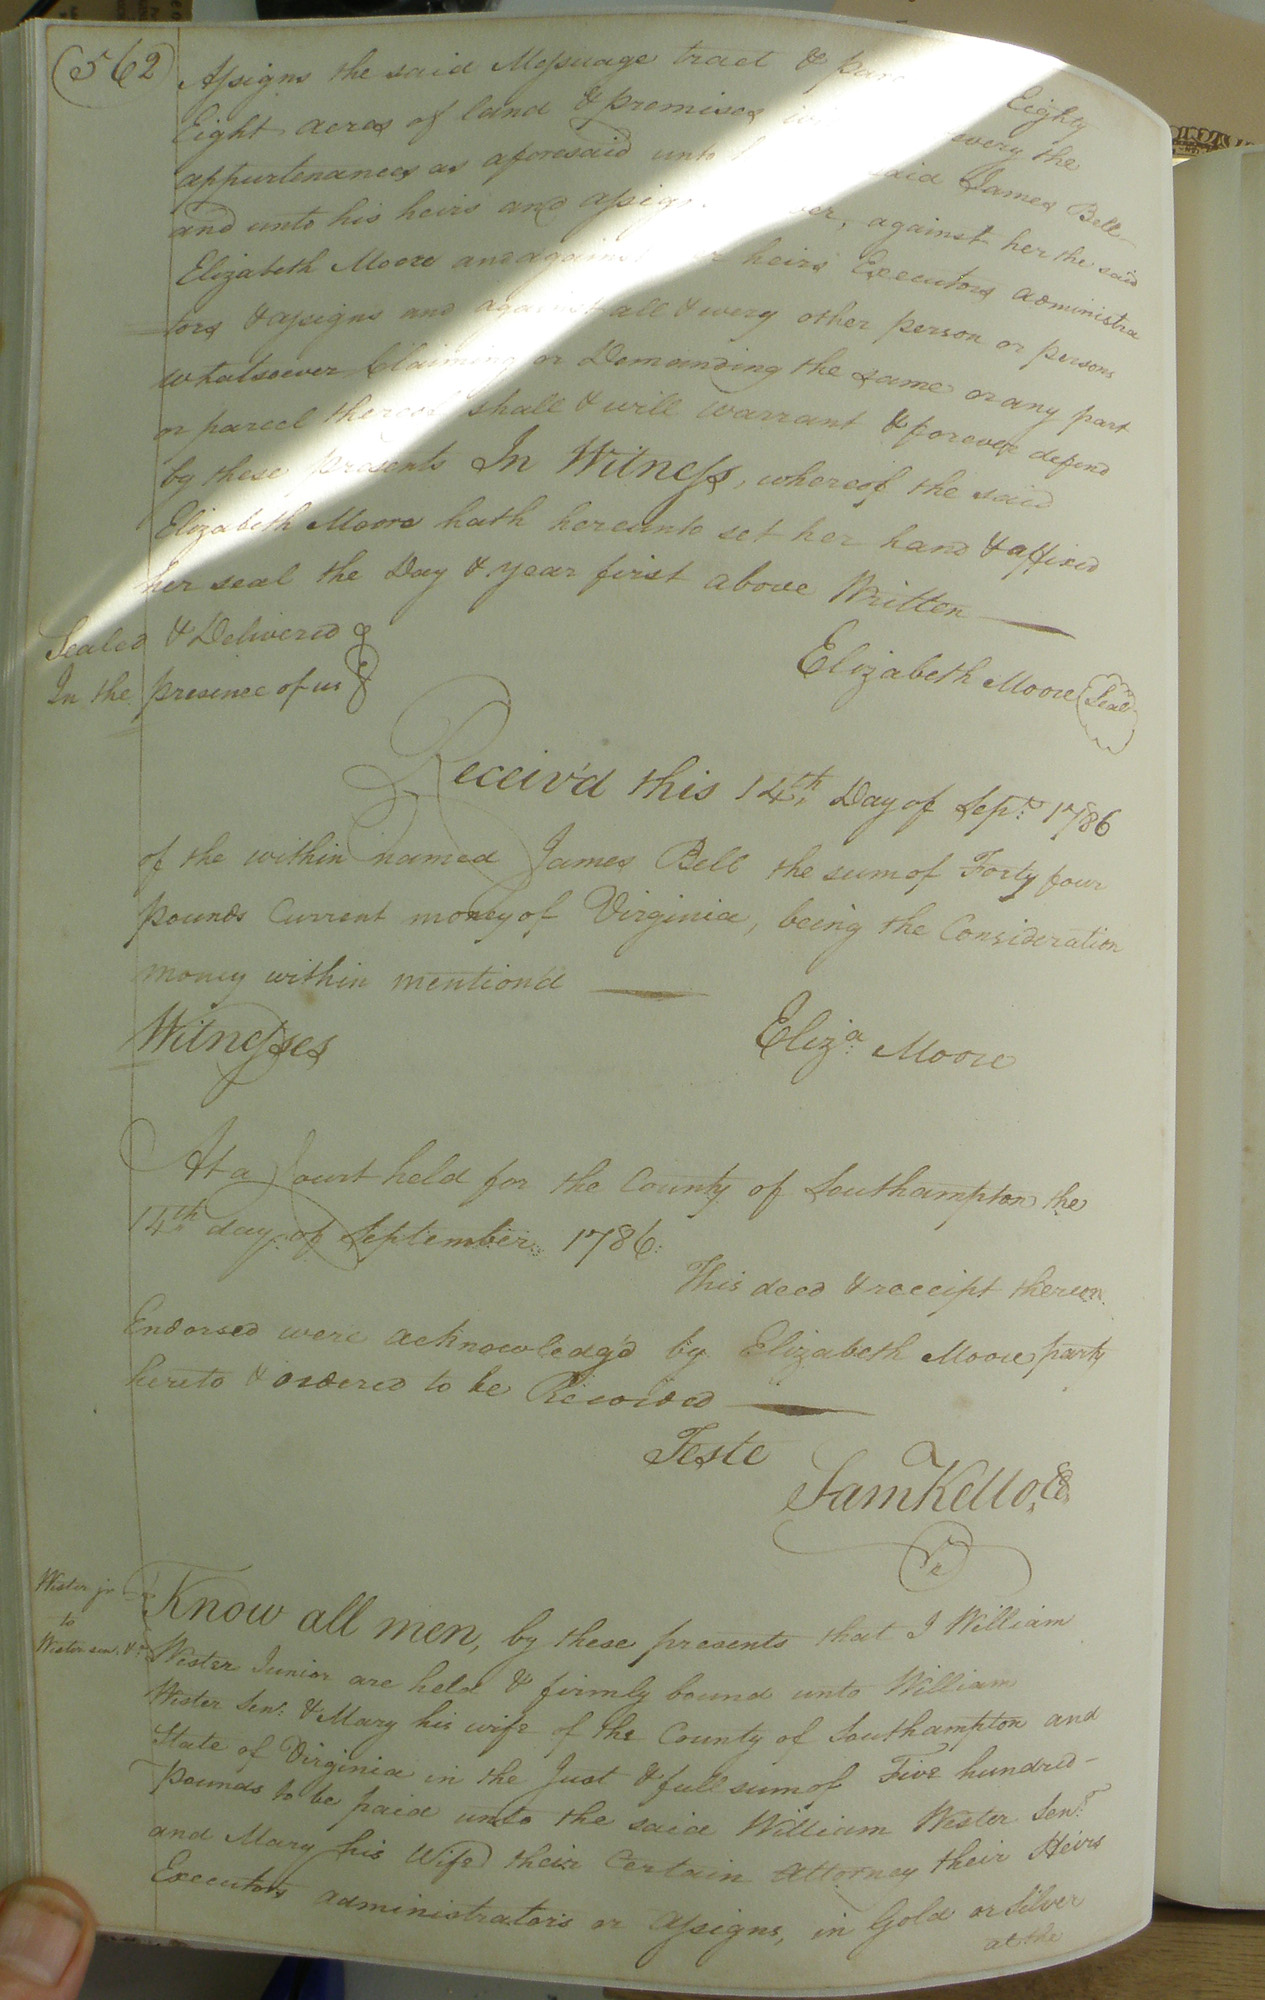 562
Assigns the said Messuage tract & Eighty
Eight acres of land & premises every the
appurtenances as aforesaid unto said James Bell
and unto his heirs and against her the said
Elizabeth Moore and against heirs Executors administra
tors & assigns and against all & every other person or persons
whatsoever Claiming or Demanding the same or any part
or parcel thereof shall & will warrant & forever defend
by these presents In Witness, whereof the said
Elizabeth Moore hath hereunto set her hand & affixed
her seal the Day & year first above Written
Sealed & Delivered
In the presince of us
Elizabeth Moore Seal
Receiv'd this 14th Day of Sept. 1786
of the within named James Bell the sum of Forty four
pounds Current money of Virginia, being the Consideration
money within mention'd
Witnesses
Eliza. Moore
At a Court held for the County of Southampton the
14th day of September 1786.
This deed & receipt thereon
Endorsed were acknowledg'd by Elizabeth Moore party
hereto & ordered to be Recorded
Teste
Sam Kello,
Wester jr
to
Wester sen. &c
Know all men, by these presents that I William
Wester Junior are held & firmly bound unto William
Wester Senr. & Mary his wife of the County of Southampton and
State of Virginia in the Just & full sum of Five hundred
pounds to be paid unto the said William Wester Senr.
and Mary his Wife their Certain Attorney their Heirs
Executors administrators or assigns, in Gold or Silver
at the